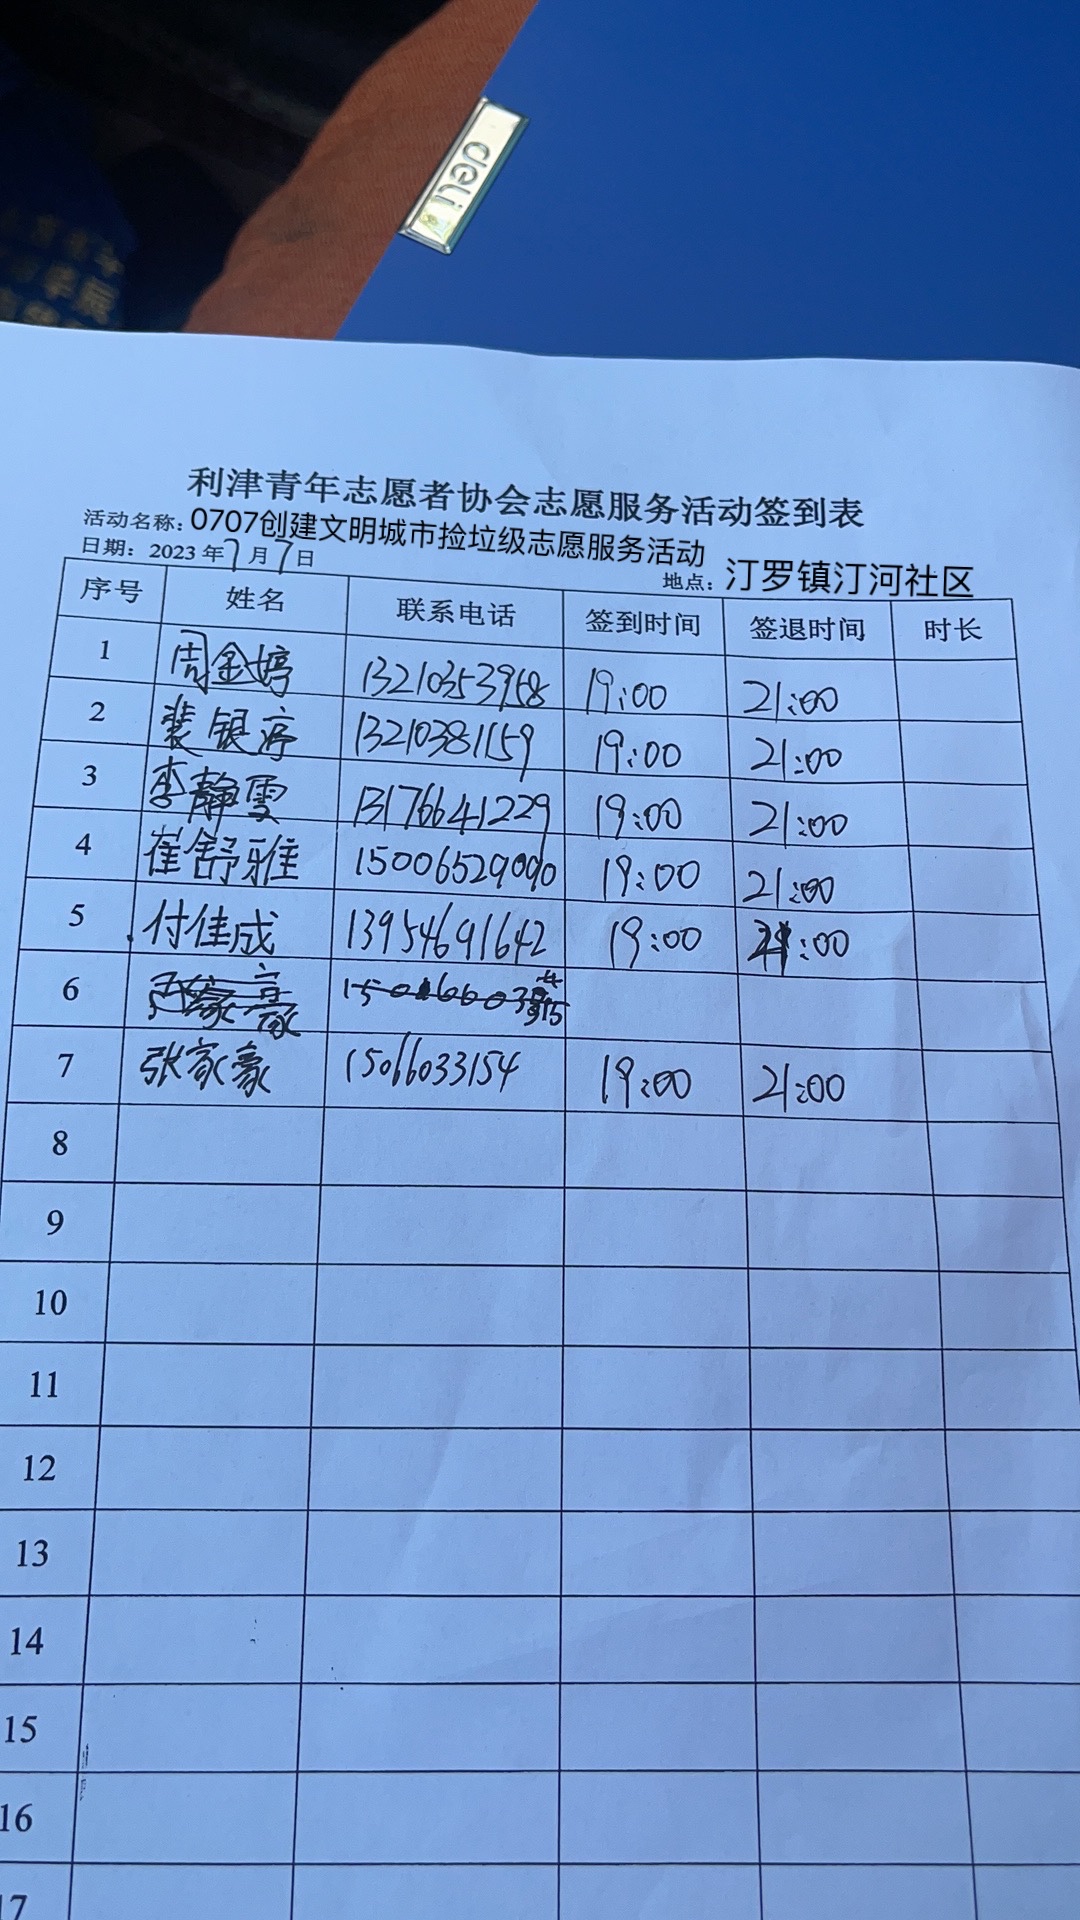 deli
利津青年志愿者协会志愿服务活动签到表
活动名称：0707创建文明城市捡垃级志愿服务活动
日期：2023年7月7日 地点：汀罗镇汀河社区
序号 姓名 联系电话 签到时间 签退时间 时长
1 周金婷 13210353958 19:00 21:00
2 裴银婷 13210381159 19:00 21:00
3 李静雯 13176641229 19:00 21:00
4 崔舒雅 15006529090 19:00 21:00
5 付佳成 13954691642 19:00 21:00
6
7 张家豪 15066033154 19:00 21:00
8
9
10
11
12
13
14
15
16
17